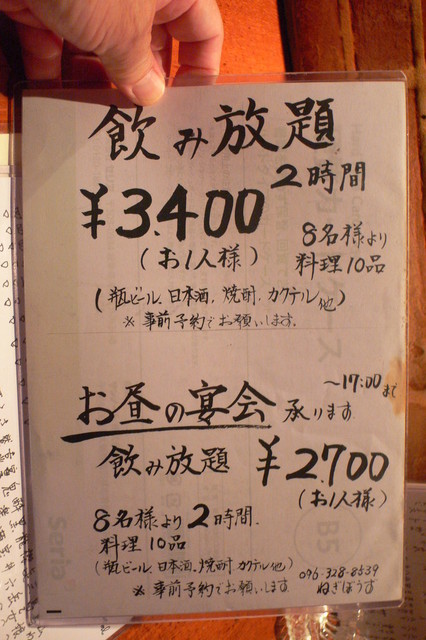 飲み放題
2時間
¥3,400
(お1人様)
8名様より
料理10品
(瓶ビール、日本酒、焼酎、カクテル他)
※事前予約でお願いします。
〜17:00まで
お昼の宴会 承ります
飲み放題 ¥2,700
(お1人様)
8名様より2時間
料理10品
(瓶ビール、日本酒、焼酎、カクテル他)
※事前予約でお願いします
096-328-8539
ねぎぼうず
Seria
B5